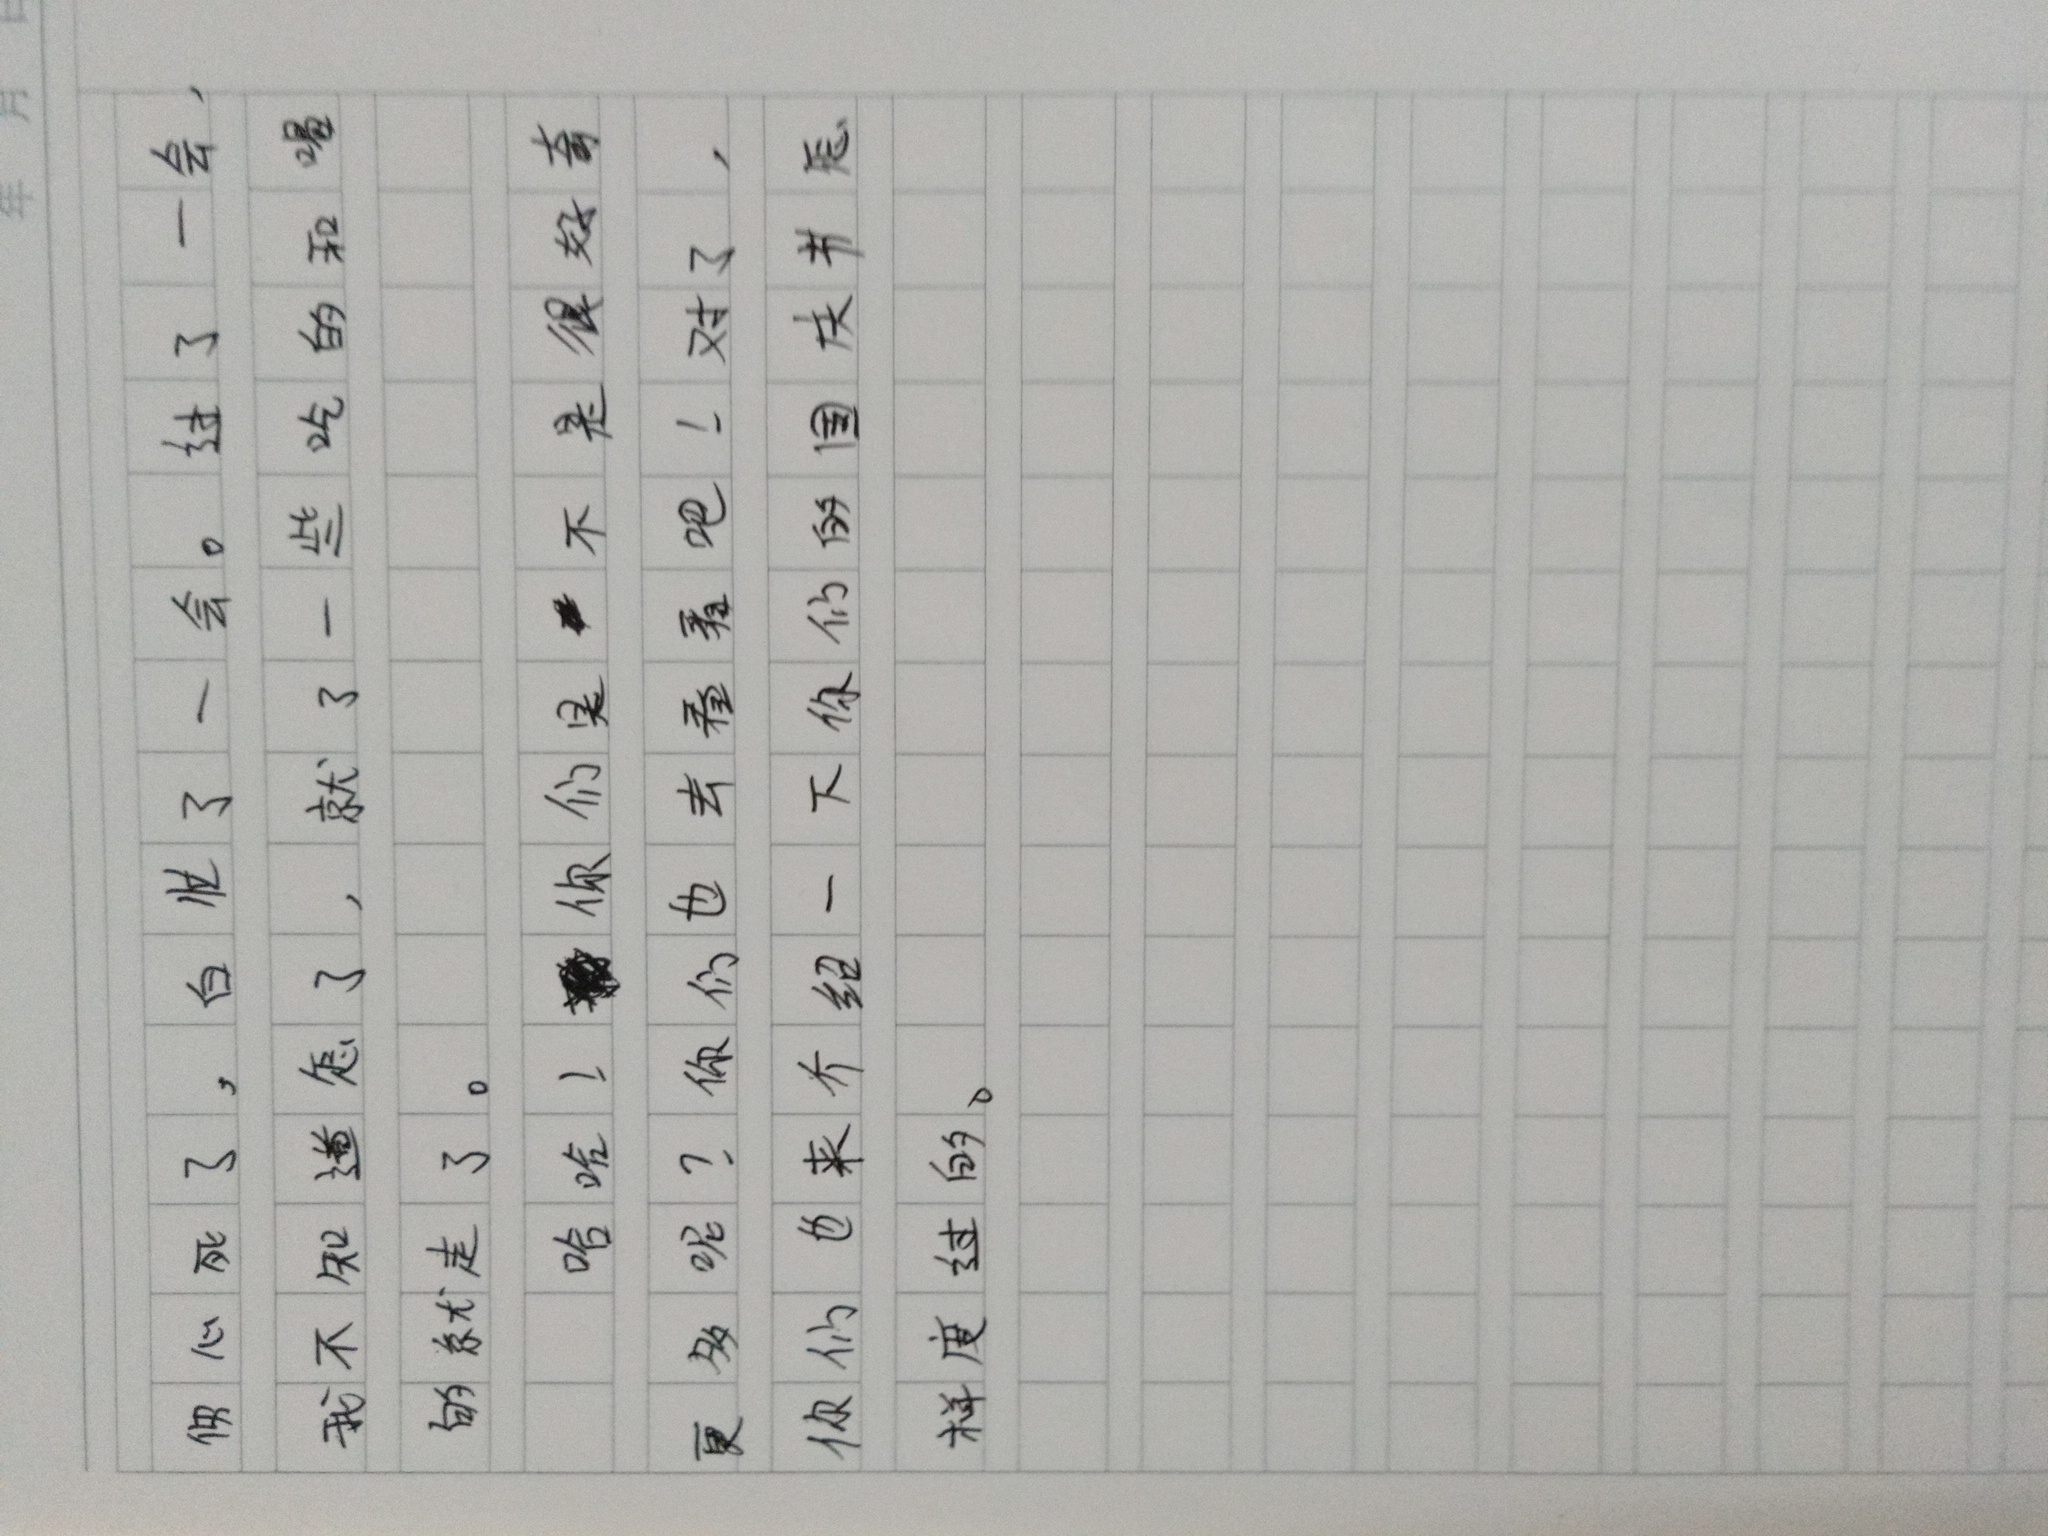 年 月 日
伤心死了，白忙了一会。过了一会，
我不知道怎了，就了一些吃的和喝
的就走了。
哈哈！你们是不是很好奇
更多呢？你们也去看看吧！对了，
你们也来介绍一下你们的国庆怎
样度过的。